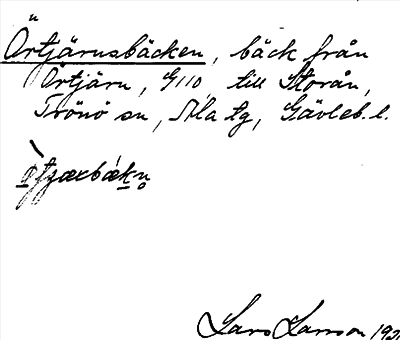 Örtjärnsbäcken, bäck från
Örtjärn, G110, till Storån,
Trönö sn, Ala tg, Gävleb. l.
Lars Larsson